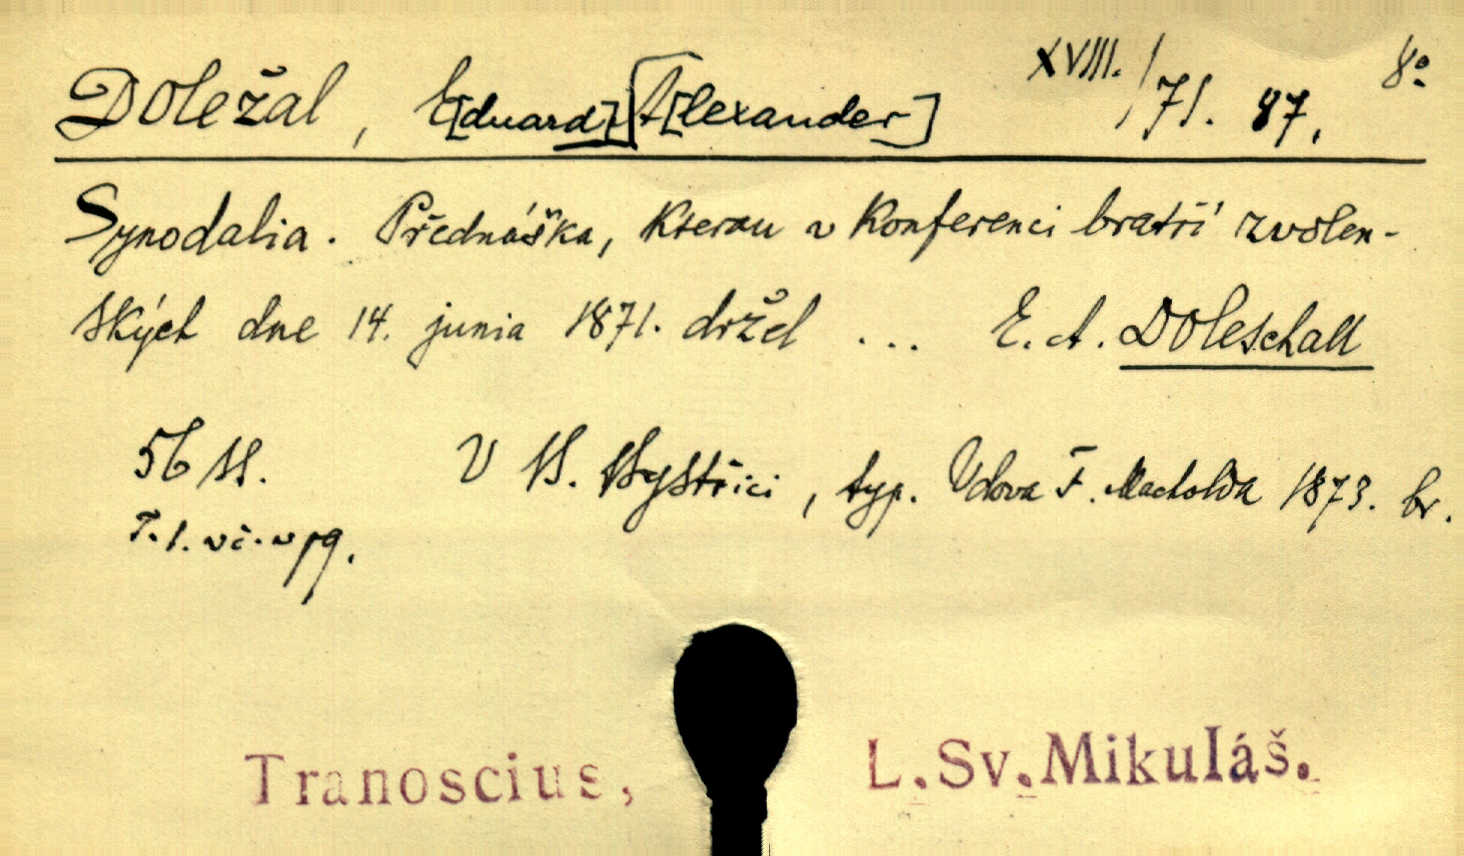 Doležal, E[duard] A[lexander] XVIII./71. 87. 8°
Synodalia. Přednáška, kterau v konferenci bratří zvolen-
ských dne 14. junia 1871. držel ... E. A. Doleschall
56 ss. V B. Bystřici, typ. Vdova F. Macholda 1873. br.
F. 1. vč. v pg.
Tranoscius, L. Sv. Mikuláš.